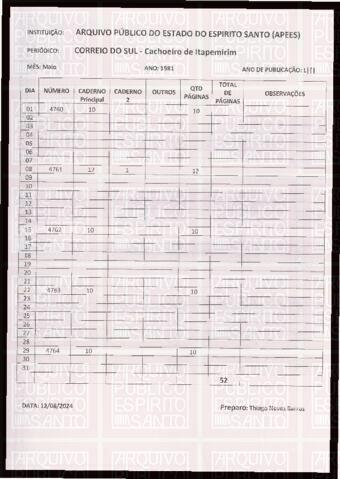 INSTITUIÇÃO: ARQUIVO PÚBLICO DO ESTADO DO ESPIRITO SANTO (APEES)
PERIÓDICO: CORREIO DO SUL - Cachoeiro de Itapemirim
MÊS: Maio ANO: 1981 ANO DE PUBLICAÇÃO:
DIA NÚMERO CADERNO Principal CADERNO 2 OUTROS QTD PÁGINAS TOTAL DE PÁGINAS OBSERVAÇÕES
01 4760 10 10
02
03
04
05
06
07
08 4761 12 1 12
09
10
11
12
13
14
15 4762 10 10
16
17
18
19
20
21
22 4763 10 10
23
24
25
26
27
28
29 4764 10 10
30
31
52
DATA: 13/08/2024 Preparo: Thiago Neves Barros
ARQUIVO PÚBLICO ESPIRITO SANTO